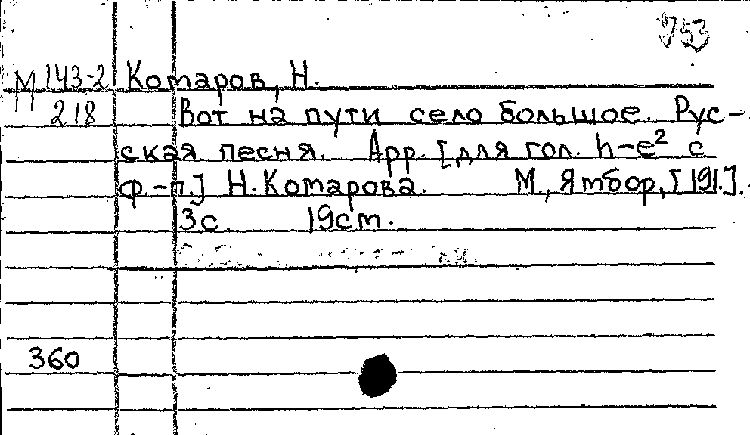 953
М 143-2 Комаров, Н.
218 Вот на пути село большое. Рус-
ская песня. Арр. [для гол. h-e² с
ф.-п.] Н. Комарова. М., Ямбор, [191.].
3с. 19см.
360